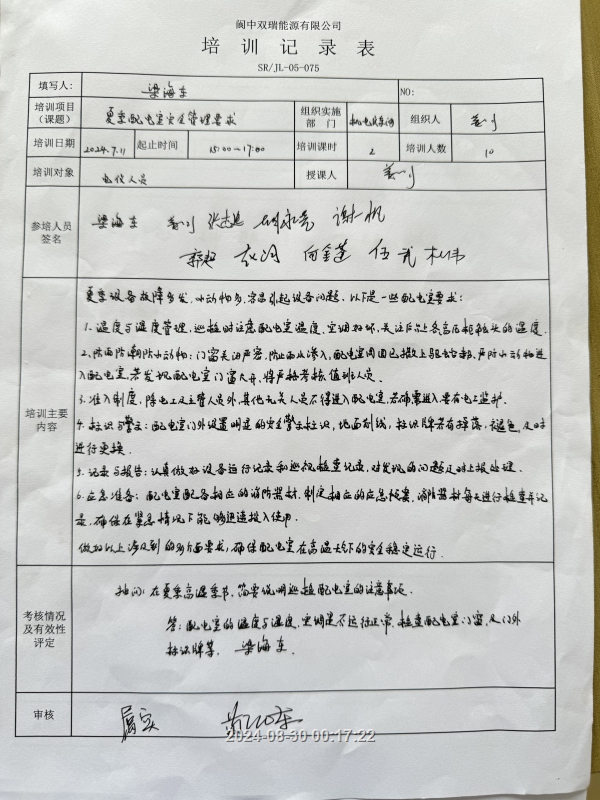 阆中双瑞能源有限公司
培训记录表
SR/JL-05-075
填写人: 梁海东 NO:
培训项目（课题） 夏季配电室安全管理要求 组织实施部门 组织人
培训日期 2024.7.11 起止时间 15:00~17:00 培训课时 2 培训人数 10
培训对象 电仪人员 授课人
参培人员签名 梁海东 谢帆
郭超 向金莲 伍武 杜伟
培训主要内容
夏季设备故障多发，小动物多，容易引起设备问题，以下是一些配电室要求：
1.温度与湿度管理，巡检时注意配电室温度，空调好坏，关注后台各高压柜触头的温度
2.防雨防潮防小动物：门窗关闭严密，防止雨水渗入，配电室周围已撒上驱虫，严防小动物进
入配电室，若发现配电室门窗大开，将严格考核值班人员.
3.准入制度，除电工及主管人员外，其他无关人员不得进入配电室，若确需进入，要有电工监护.
4.标识与警示：配电室门外设置明显的安全警示标识，地面划线，标识牌若有掉落，褪色，及时
进行更换.
5.记录与报告：认真做好设备运行记录和巡视检查记录，对发现的问题及时上报处理.
6.应急准备：配电室配备相应的消防器材，制定相应的应急预案，消防器材每天进行检查并记
录，确保在紧急情况下能够迅速投入使用.
做好以上涉及到的多方面要求，确保配电室在高温天气下的安全稳定运行.
考核情况及有效性评定
抽问：在夏季高温季节，简要说明巡检配电室的注意事项.
答：配电室的温度与湿度，空调是否运行正常，检查配电室门窗，及门外
标识牌等. 梁海东.
审核 属实
2024-08-30 00:17:22